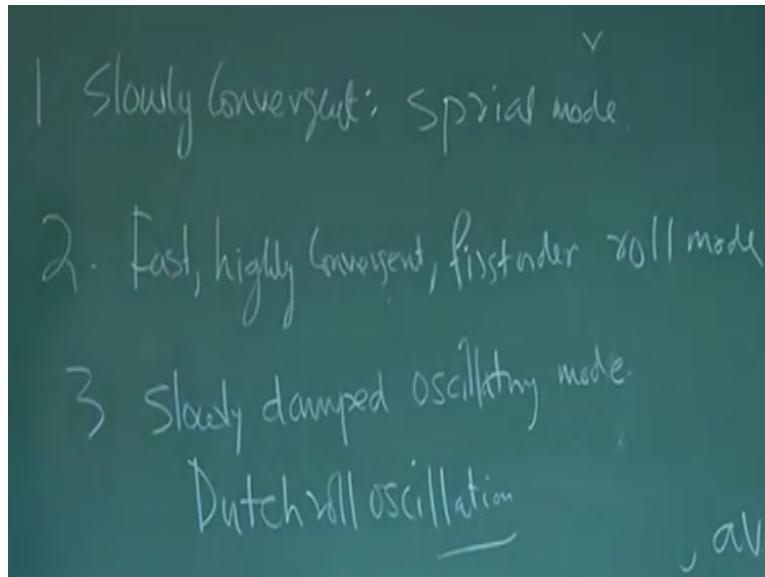 1 Slowly Convergent: sprial mode.
2. Fast, highly Convergent, first order roll mode
3 Slowly damped oscillatny mode.
Dutch roll oscillation
, av